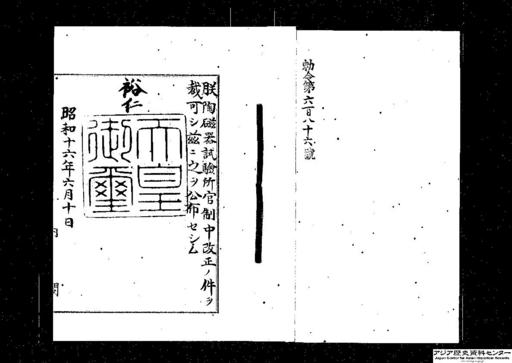 勅令第六百八十六號
朕陶磁器試驗所官制中改正ノ件ヲ
裁可シ茲ニ之ヲ公布セシム
裕仁
天皇
御璽
昭和十六年六月十日
内閣
アジア歴史資料センター
Japan Center for Asian Historical Records